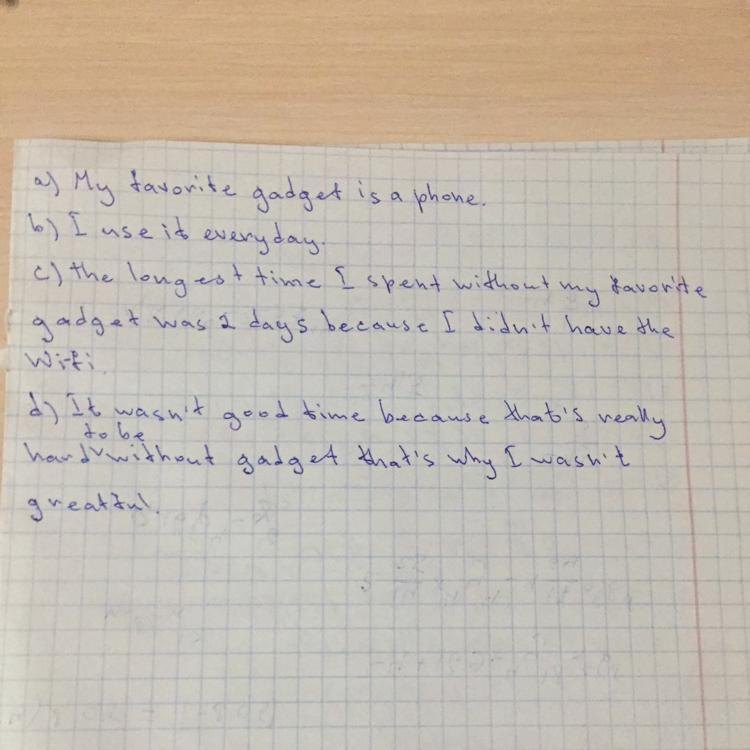 a) My favorite gadget is a phone.
b) I use it everyday.
c) the longest time I spent without my favorite
gadget was 2 days because I didn't have the
Wi-Fi.
d) It wasn't good time because that's really
to be
hard without gadget that's why I wasn't
greatful.